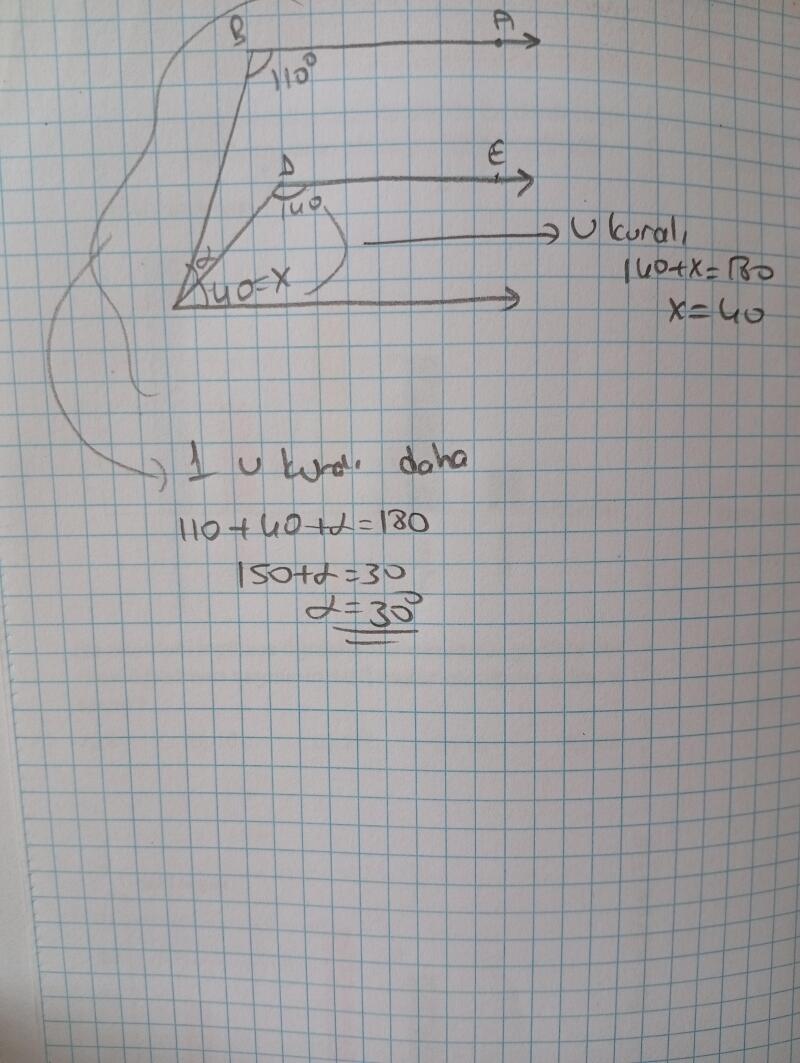 B A
110°
D E
140
U kuralı
140+x=180
x=40
α
40=x
1 U kuralı daha
110+40+α=180
150+α=30
α=30°